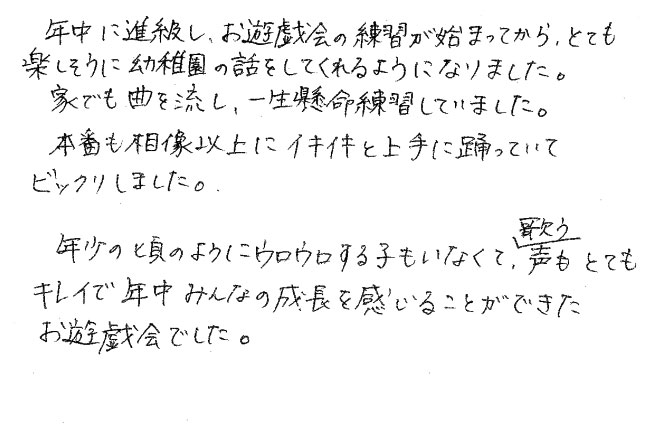 年中に進級し、お遊戯会の練習が始まってから、とても
楽しそうに幼稚園の話をしてくれるようになりました。
家でも曲を流し、一生懸命練習していました。
本番も相像以上にイキイキと上手に踊っていて
ビックリしました。
年少の頃のようにウロウロする子もいなくて、歌う声もとても
キレイで年中みんなの成長を感じることができた
お遊戯会でした。